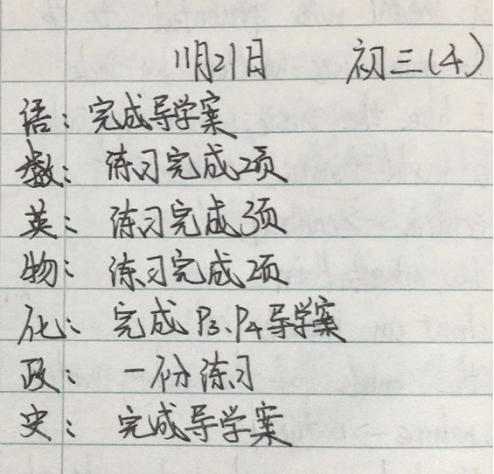 11月21日 初三(4)
语:完成导学案
数:练习完成2项
英:练习完成3项
物:练习完成2项
化:完成P3、P4导学案
政:一份练习
史:完成导学案